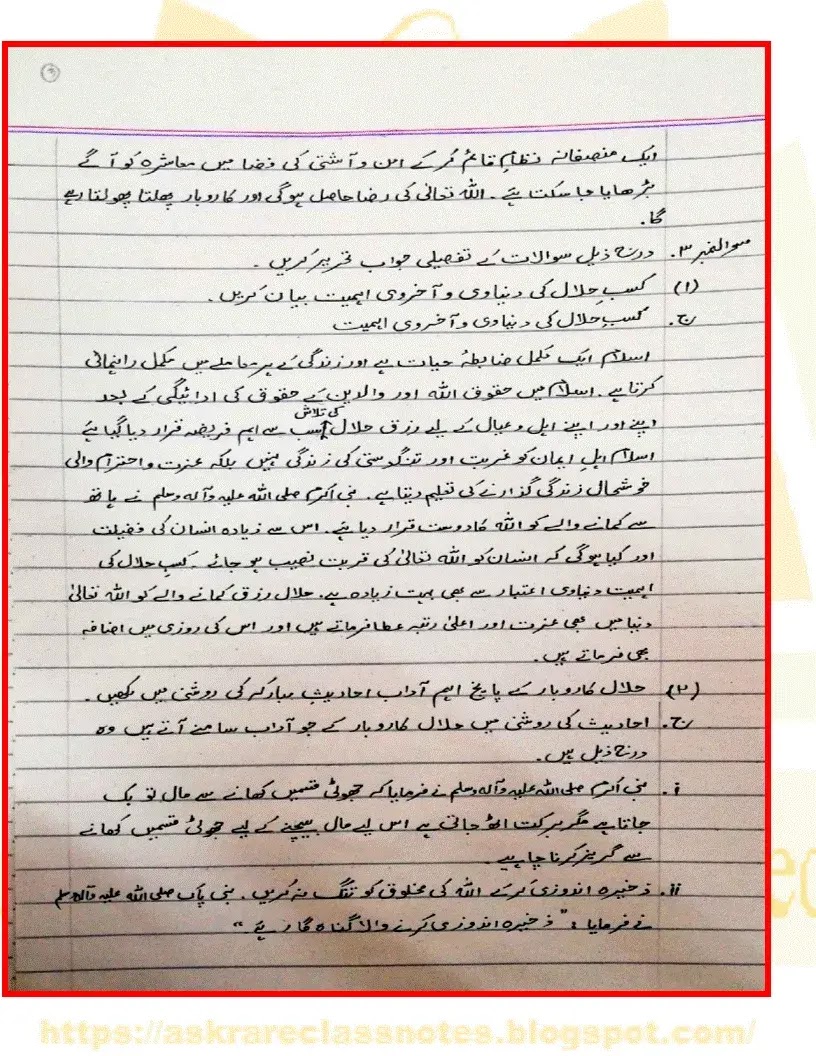 ایک منصفانہ نظام قائم کر کے امن و آشتی کی فضا میں معاشرہ کو آگے
بڑھایا جا سکتا ہے۔ اللہ تعالیٰ کی رضا حاصل ہوگی اور کاروبار پھلتا پھولتا رہے
گا۔
سوال نمبر ۳۔ درج ذیل سوالات کے تفصیلی جواب تحریر کریں۔
(۱) کسبِ حلال کی دنیاوی و آخروی اہمیت بیان کریں۔
ج۔ کسبِ حلال کی دنیاوی و آخروی اہمیت
اسلام ایک مکمل ضابطۂ حیات ہے اور زندگی کے ہر معاملے میں مکمل راہنمائی
کرتا ہے۔ اسلام میں حقوق اللہ اور والدین کے حقوق کی ادائیگی کے بعد
اپنے اور اپنے اہل و عیال کے لیے رزق حلال کی تلاش سب سے اہم فریضہ قرار دیا گیا ہے
اسلام اہلِ ایمان کو غربت اور تنگدستی کی زندگی نہیں بلکہ عزت و احترام والی
خوشحال زندگی گذارنے کی تعلیم دیتا ہے۔ نبی اکرم صلی اللہ علیہ وآلہ وسلم نے ہاتھ
سے کمانے والے کو اللہ کا دوست قرار دیا ہے۔ اس سے زیادہ انسان کی فضیلت
اور کیا ہوگی کہ انسان کو اللہ تعالیٰ کی قربت نصیب ہو جائے۔ کسبِ حلال کی
اہمیت دنیاوی اعتبار سے بھی بہت زیادہ ہے۔ حلال رزق کمانے والے کو اللہ تعالیٰ
دنیا میں بھی عزت اور اعلیٰ رتبہ عطا فرماتے ہیں اور اس کی روزی میں اضافہ
بھی فرماتے ہیں۔
(۲) حلال کاروبار کے پانچ اہم آداب احادیثِ مبارکہ کی روشنی میں لکھیں۔
ج۔ احادیث کی روشنی میں حلال کاروبار کے جو آداب سامنے آتے ہیں وہ
درج ذیل ہیں۔
i۔ نبی اکرم صلی اللہ علیہ وآلہ وسلم نے فرمایا کہ جھوٹی قسمیں کھانے سے مال تو بک
جاتا ہے مگر برکت اٹھ جاتی ہے اس لیے مال بیچنے کے لیے جھوٹی قسمیں کھانے
سے گریز کرنا چاہیے۔
ii۔ ذخیرہ اندوزی کر کے اللہ کی مخلوق کو تنگ نہ کریں۔ نبی پاک صلی اللہ علیہ وآلہ وسلم
نے فرمایا : "ذخیرہ اندوزی کرنے والا گناہ گار ہے"
https://askrareclassnotes.blogspot.com/